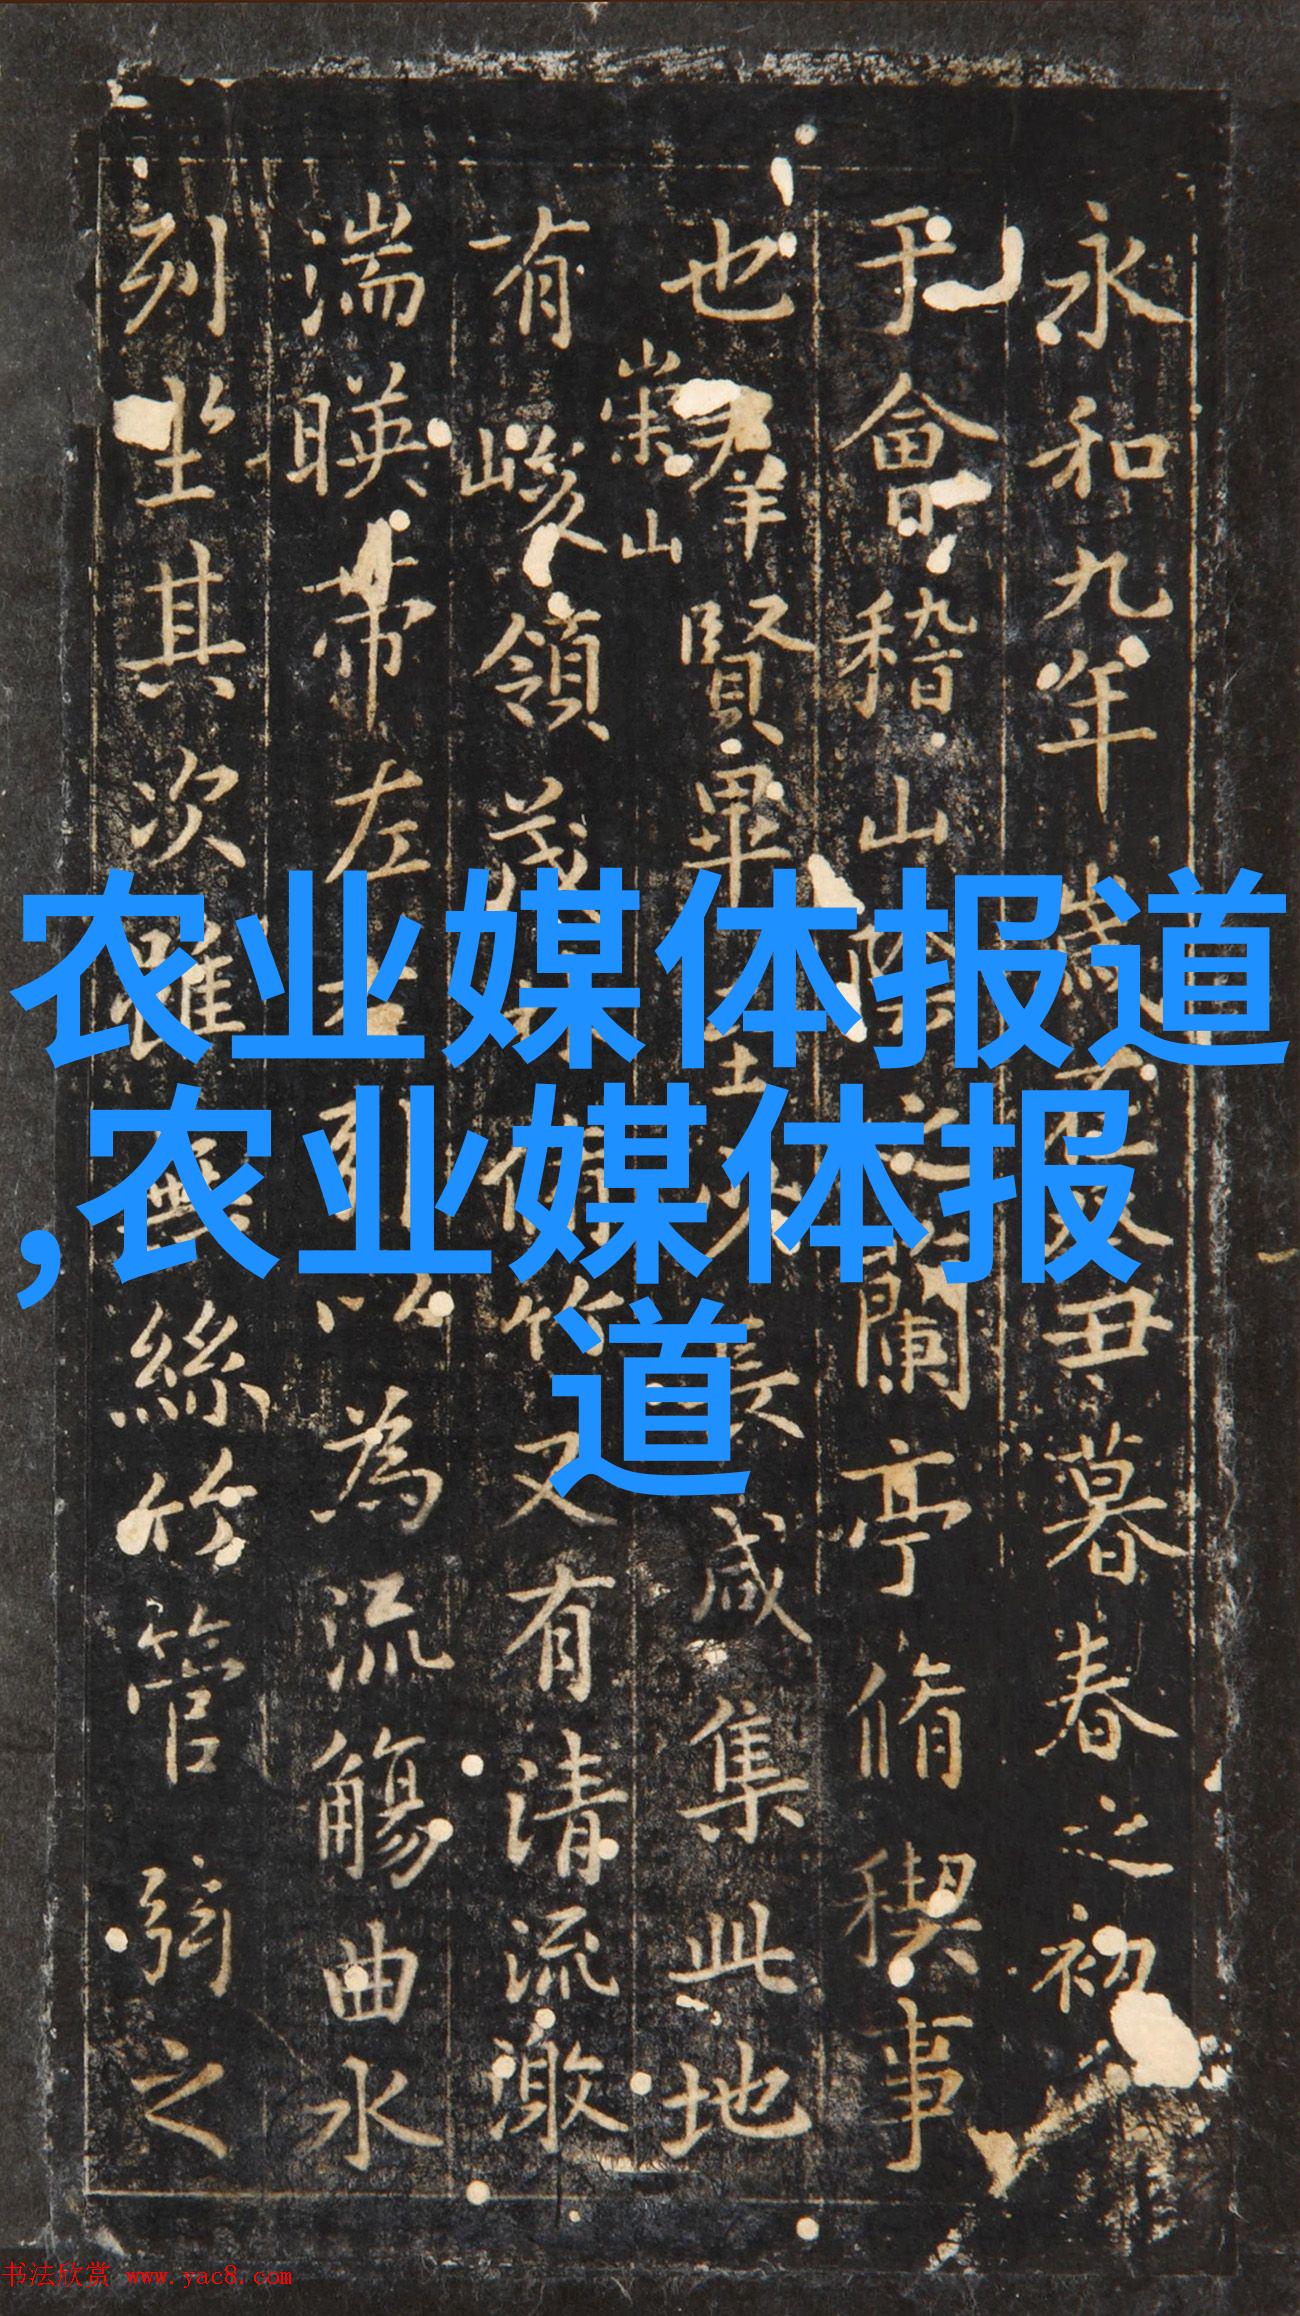 永和九年歲在癸丑暮春之初
于會稽山陰之蘭亭脩稧事
也羣賢畢至少長咸集此地
有崇山峻領茂林脩竹又有清流激
湍暎帶左右引以為流觴曲水
列坐其次雖無絲竹管弦之
农业媒体报道
,农业媒体报
道
书法欣赏 www.yac8.com